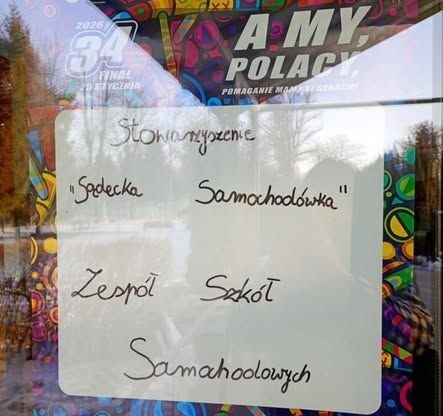 2026
34
FINAŁ
25 STYCZNIA
A MY,
POLACY,
POMAGANIE MAMY W GENACH!
Stowarzyszenie
"Sądecka Samochodówka"
Zespół Szkół
Samochodowych